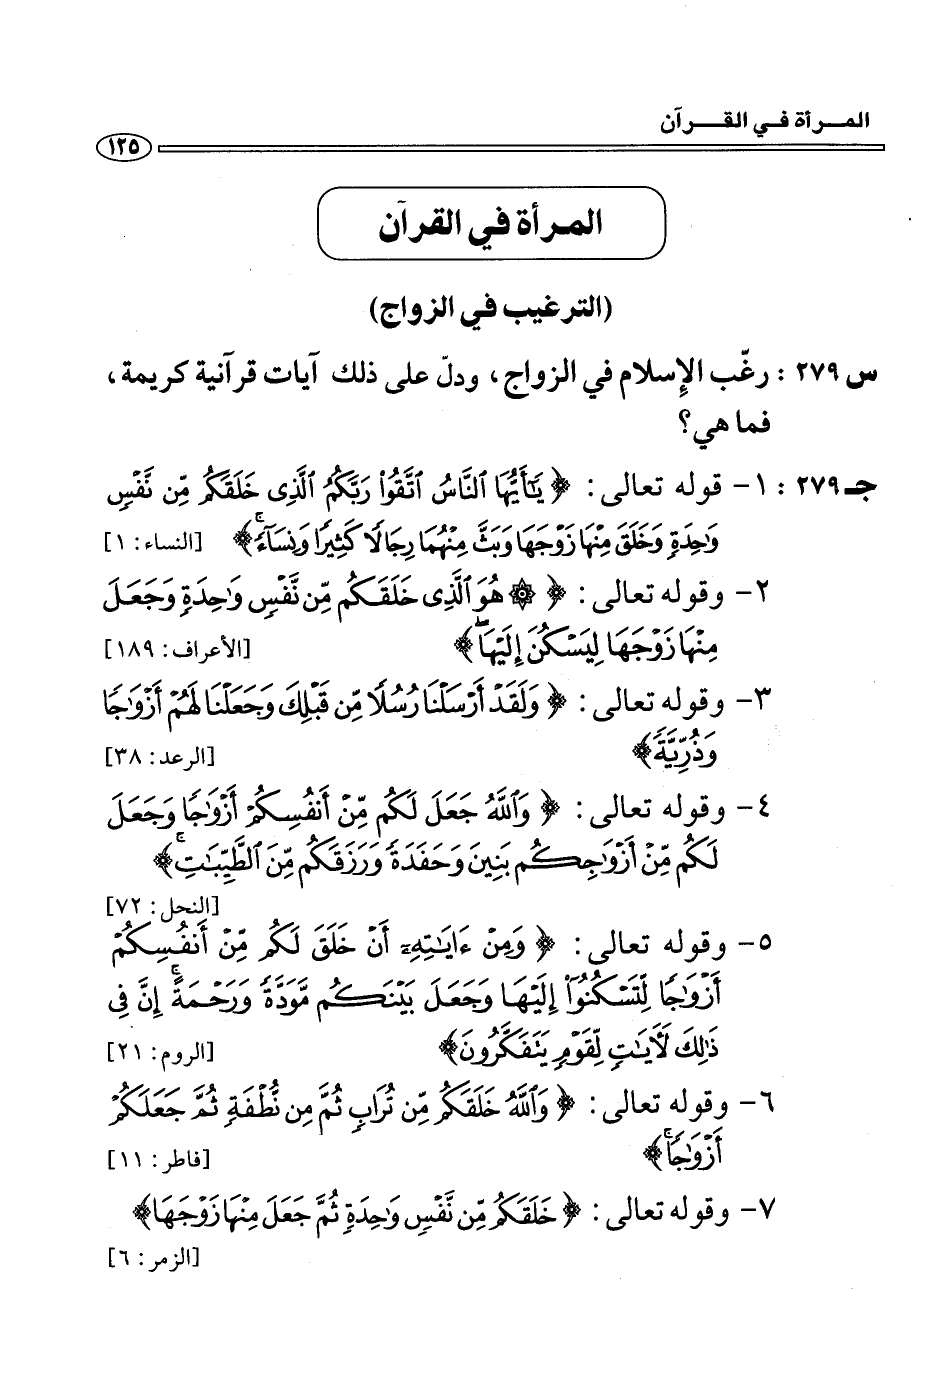 المـــرأة فــي القـــرآن
١٢٥
المرأة في القرآن
(الترغيب في الزواج)
س ٢٧٩ : رغّب الإسلام في الزواج، ودلّ على ذلك آيات قرآنية كريمة،
فما هي؟
جـ ٢٧٩ : ١- قوله تعالى: ﴿ يَٰٓأَيُّهَا ٱلنَّاسُ ٱتَّقُوا۟ رَبَّكُمُ ٱلَّذِى خَلَقَكُم مِّن نَّفْسٍ
وَٰحِدَةٍ وَخَلَقَ مِنْهَا زَوْجَهَا وَبَثَّ مِنْهُمَا رِجَالًا كَثِيرًا وَنِسَآءً ۚ﴾ [النساء: ١]
٢- وقوله تعالى: ﴿ ۞ هُوَ ٱلَّذِى خَلَقَكُم مِّن نَّفْسٍ وَٰحِدَةٍ وَجَعَلَ
مِنْهَا زَوْجَهَا لِيَسْكُنَ إِلَيْهَا ۖ﴾ [الأعراف: ١٨٩]
٣- وقوله تعالى: ﴿ وَلَقَدْ أَرْسَلْنَا رُسُلًا مِّن قَبْلِكَ وَجَعَلْنَا لَهُمْ أَزْوَٰجًا
وَذُرِّيَّةً ۚ﴾ [الرعد: ٣٨]
٤- وقوله تعالى: ﴿ وَٱللَّهُ جَعَلَ لَكُم مِّنْ أَنفُسِكُمْ أَزْوَٰجًا وَجَعَلَ
لَكُم مِّنْ أَزْوَٰجِكُم بَنِينَ وَحَفَدَةً وَرَزَقَكُم مِّنَ ٱلطَّيِّبَٰتِ ۚ﴾
[النحل: ٧٢]
٥- وقوله تعالى: ﴿ وَمِنْ ءَايَٰتِهِۦٓ أَنْ خَلَقَ لَكُم مِّنْ أَنفُسِكُمْ
أَزْوَٰجًا لِّتَسْكُنُوٓا۟ إِلَيْهَا وَجَعَلَ بَيْنَكُم مَّوَدَّةً وَرَحْمَةً ۚ إِنَّ فِى
ذَٰلِكَ لَءَايَٰتٍ لِّقَوْمٍ يَتَفَكَّرُونَ﴾ [الروم: ٢١]
٦- وقوله تعالى: ﴿ وَٱللَّهُ خَلَقَكُم مِّن تُرَابٍ ثُمَّ مِن نُّطْفَةٍ ثُمَّ جَعَلَكُمْ
أَزْوَٰجًا ۚ﴾ [فاطر: ١١]
٧- وقوله تعالى: ﴿ خَلَقَكُم مِّن نَّفْسٍ وَٰحِدَةٍ ثُمَّ جَعَلَ مِنْهَا زَوْجَهَا﴾
[الزمر: ٦]